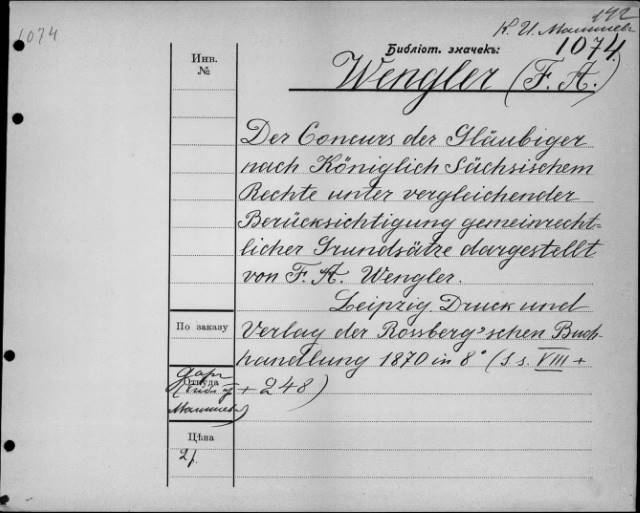 192
1074
К. И. Малышев
Библіот. значекъ:
1074.
Wengler (F. A.)
Инв.
№
Der Concurs der Gläubiger
nach Königlich Sächsischem
Rechte unter vergleichender
Berücksichtigung gemeinrecht=
licher Grundsätze dargestellt
von F. A. Wengler.
Leipzig. Druck und
По заказу
Verlag der Rossberg'schen Buch-
handlung 1870 in 8° (S s. VIII +
Откуда
даръ
+ 248)
Малышева)
Цѣна
2 р.